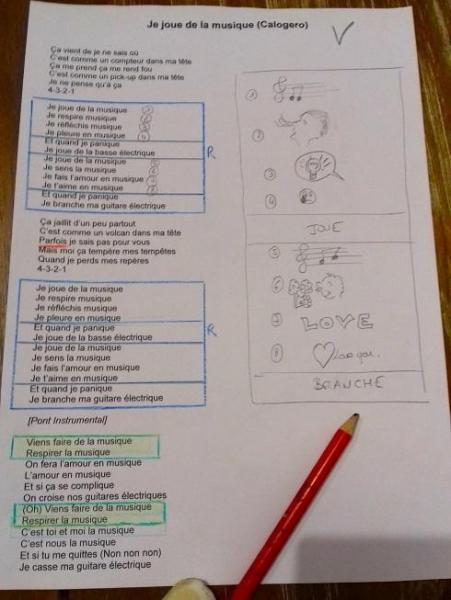 Je joue de la musique (Calogero)
Ça vient de je ne sais où
C'est comme un compteur dans ma tête
Ça me prend ça me rend fou
C'est comme un pick-up dans ma tête
Je ne pense qu'à ça
4-3-2-1
Je joue de la musique
Je respire musique
Je réfléchis musique
Je pleure en musique
Et quand je panique
Je joue de la basse électrique
Je joue de la musique
Je sens la musique
Je fais l'amour en musique
Je t'aime en musique
Et quand je panique
Je branche ma guitare électrique
R
Ça jaillit d'un peu partout
C'est comme un volcan dans ma tête
Parfois je sais pas pour vous
Mais moi ça tempère mes tempêtes
Quand je perds mes repères
4-3-2-1
Je joue de la musique
Je respire musique
Je réfléchis musique
Je pleure en musique
Et quand je panique
Je joue de la basse électrique
Je joue de la musique
Je sens la musique
Je fais l'amour en musique
Je t'aime en musique
Et quand je panique
Je branche ma guitare électrique
R
[Pont Instrumental]
Viens faire de la musique
Respirer la musique
On fera l'amour en musique
L'amour en musique
Et si ça se complique
On croise nos guitares électriques
(Oh) Viens faire de la musique
Respirer la musique
C'est toi et moi la musique
C'est nous la musique
Et si tu me quittes (Non non non)
Je casse ma guitare électrique
1
2
3
4
JOUE
5
6
7 LOVE
8
BRANCHE